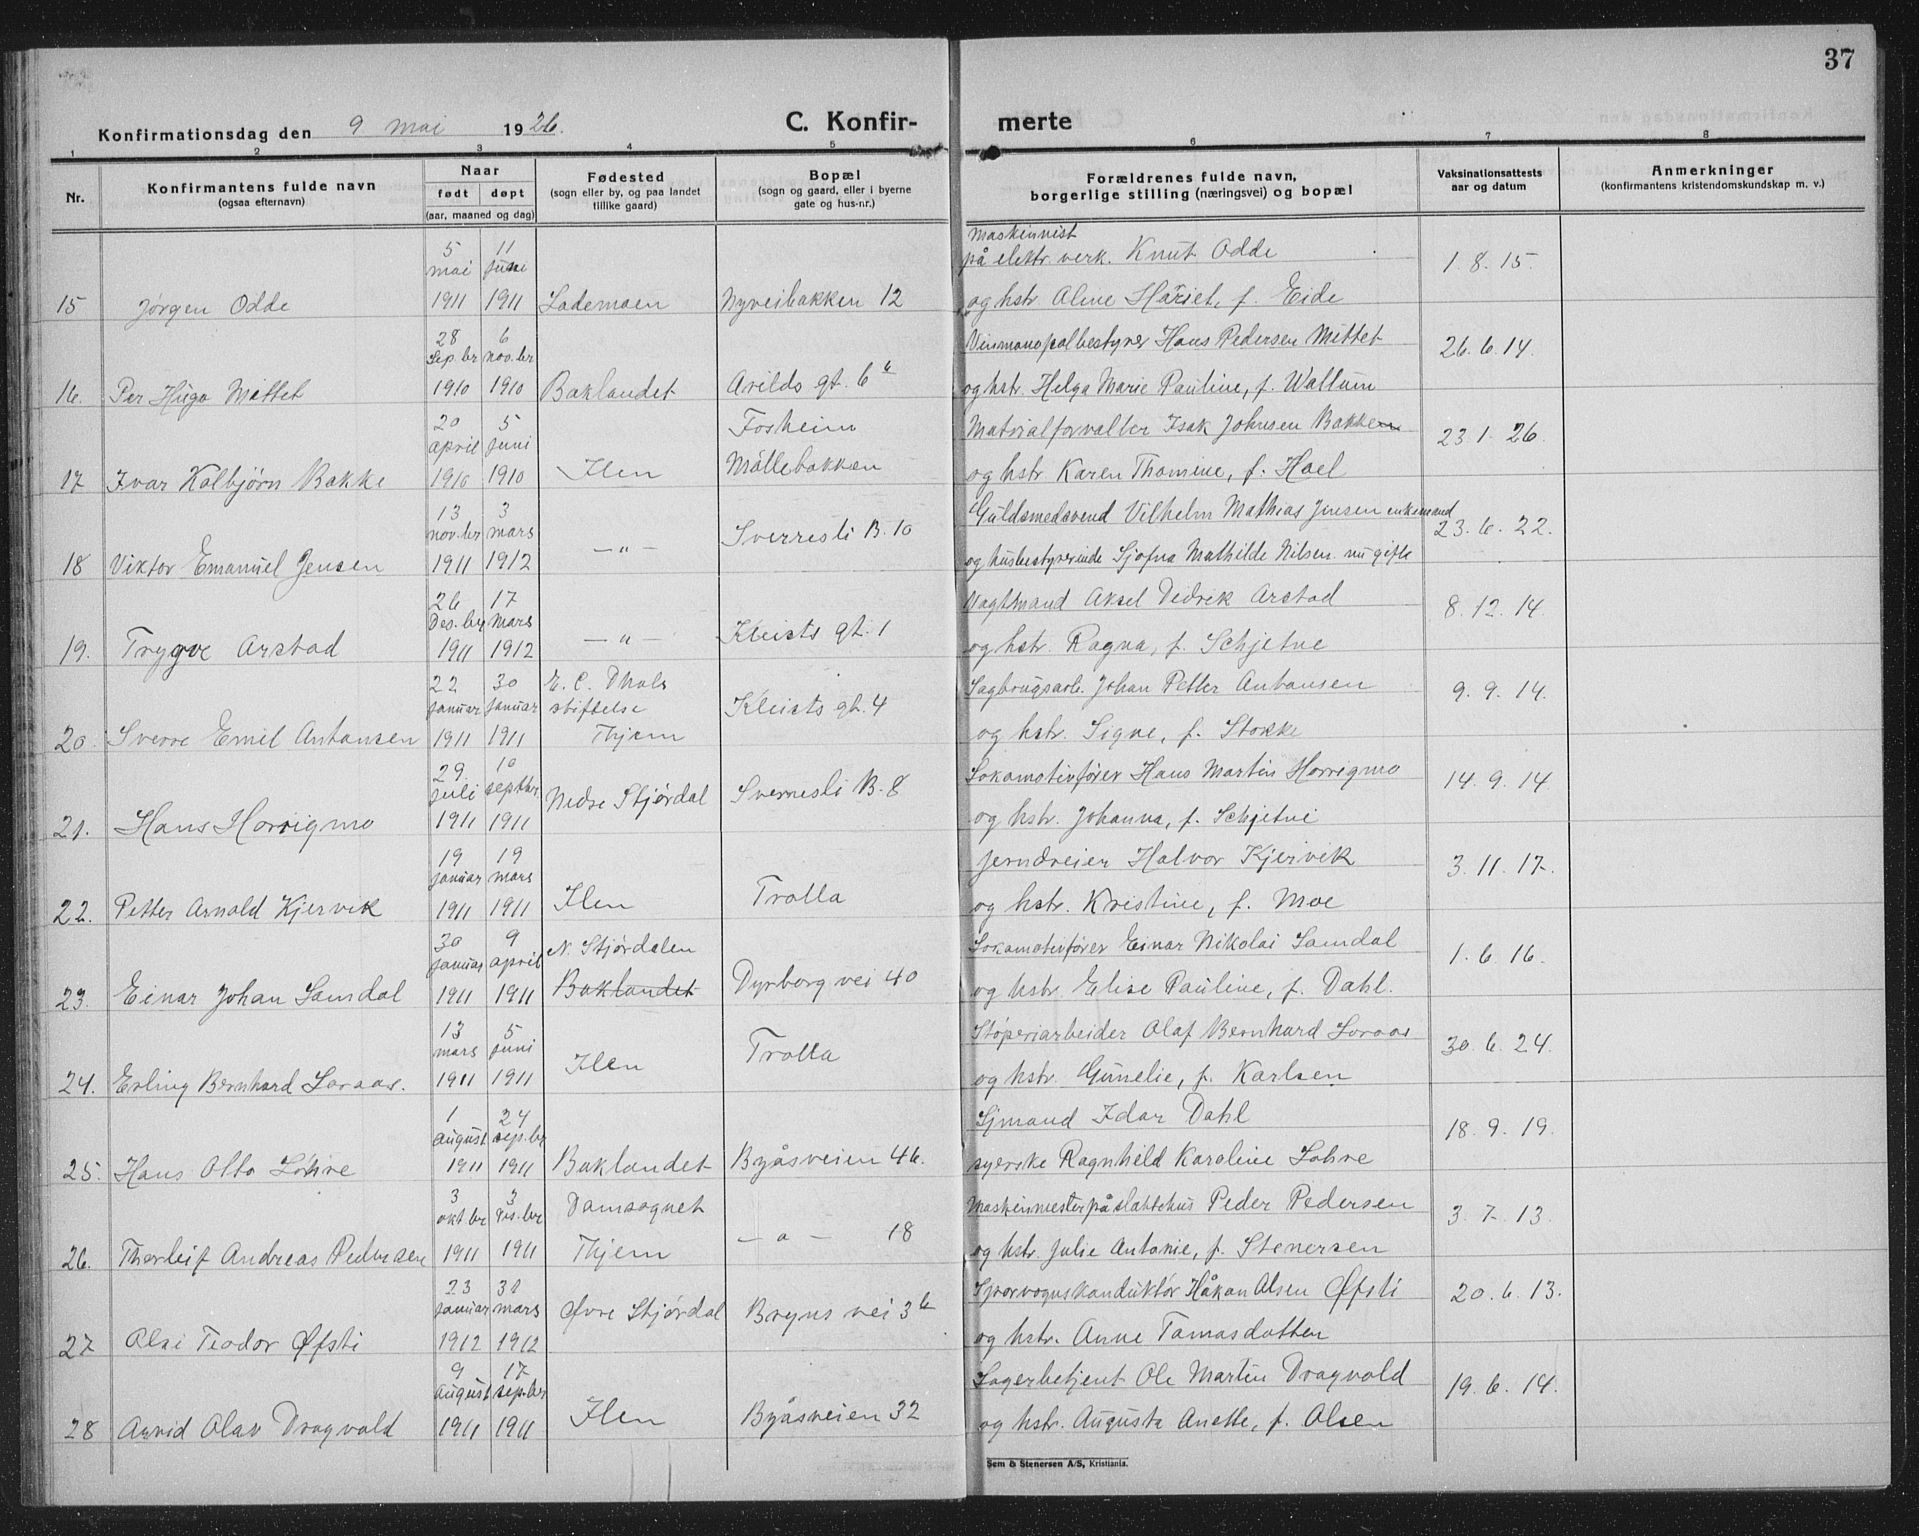 37
Konfirmationsdag den 9 mai 1926.
C. Konfir-
merte
1 2 3 4 5 6 7 8
Nr.
Konfirmantens fulde navn
(ogsaa efternavn)
Naar
født døpt
(aar, maaned og dag)
Fødested
(sogn eller by, og paa landet
tillike gaard)
Bopæl
(sogn og gaard, eller i byerne
gate og hus-nr.)
Forældrenes fulde navn,
borgerlige stilling (næringsvei) og bopæl
Vaksinationsattests
aar og datum
Anmerkninger
(konfirmantens kristendomskundskap m. v.)
5 11 Maskinnist
mai juni på elektr. verk. Knut Odde 1.8.15.
15 Jørgen Odde 1911 1911 Lademoen Nyveibakken 12 og hstr. Aline Hariet, f. Eide
28 6 Vinmonopolbestyrer Hans Pedersen Mittet 26.6.14.
Sep.br nov.br
16. Per Hugo Mittet 1910 1910 Baklandet Arilds gt. 6 og hstr. Helga Marie Pauline, f. Wallum
20 5 Fosheim Matrialforvalter Isak Johnsen Bakken 23.1.26.
april juni
17 Ivar Kolbjørn Bakke 1910 1910 Ilen Möllebakken og hstr. Karen Thomine, f. Hoel
13 3 Guldsmedsvend Vilhelm Mathias Jensen enkemand 23.6.22.
nov.br mars
18 Viktor Emanuel Jensen 1911 1912 —„— Sverresli B. 10 og husbestyrerinde Sjofna Mathilde Nilsen nu gifte
26 17 Vagtmand Aksel Didrek Arstad 8.12.14.
Des.br Mars
19. Trygve Arstad 1911 1912 —„— Kleists gt. 1 og hstr. Ragna, f. Schjetne
22 30 E. C. Dhals Sagbrugsarb. Johan Petter Antonsen 9.9.14.
januar januar stiftelse
20. Sverre Emil Antonsen 1911 1911 Thjem Kleists gt. 4 og hstr. Signe, f. Stokke
29. 10 Lokomotivfører Hans Martin Horrigmo 14.9.14.
juli septbr.
21. Hans Horrigmo 1911 1911 Nedre Stjørdal Sverresli B. 8 og hstr. Johanna, f. Schjetne
19 19 Jerndreier Halvor Kjervik 3.11.17.
januar mars
22. Petter Arnold Kjervik 1911 1911 Ilen Trolla og hstr. Kristine, f. Moe
30 9 N. Stjørdalen Lokomotivfører Einar Nikolai Samdal 1.6.16.
januar april
23. Einar Johan Samdal 1911 1911 Baklandet Dyrborg vei 40 og hstr. Elise Pauline, f. Dahl.
13 5 Støperiarbeider Olaf Bernhard Soraas 30.6.24.
mars juni
24. Erling Bernhard Soraas. 1911 1911 Ilen Trolla og hstr. Gunelie, f. Karlsen
1 24 Sjmand Idar Dahl 18.9.19.
august sep.br
25. Hans Otto Lohve 1911 1911 Baklandet Byåsveien 46. syerske Ragnhild Karoline Lohve
3 3 Domsognet Maskinmester på slaktehus Peder Pedersen 3.7.13.
okt.br Des.br
26. Thorleif Andreas Pedersen 1911 1911 Thjem —„— 18 og hstr. Julie Antonie, f. Stenersen
23 31 Sporvognskonduktör Håkon Olsen Øfsti 20.6.13.
januar mars
27 Olai Teodor Øfsti 1912 1912 Øvre Stjørdal Bryns vei 3b og hstr. Anne Tomasdatter
9 17 Lagerbetjent Ole Martin Dragvold 19.6.14.
August sep.br
28 Arvid Olav Dragvold 1911 1911 Ilen Byåsveien 32 og hstr. Augusta Anette, f. Olsen
Sem & Stenersen A/S, Kristiania.